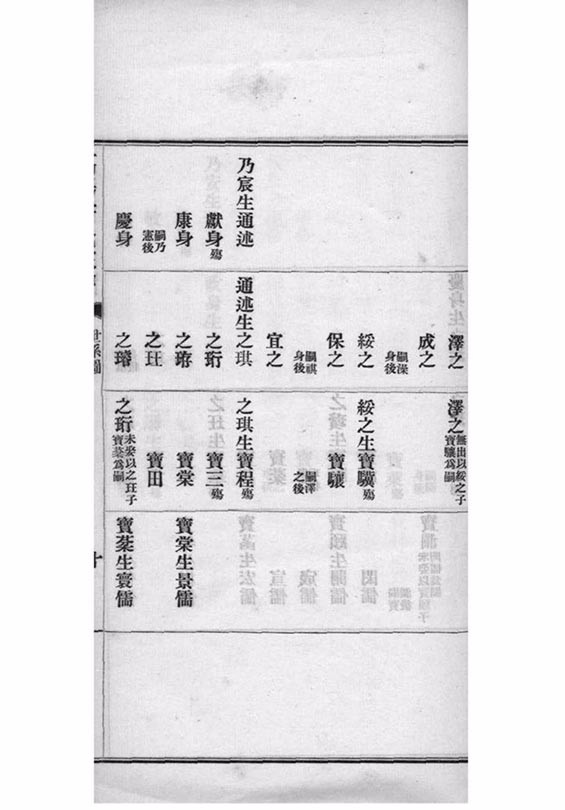 乃宸生通述
獻身殤
康身
嗣乃憲後
慶身
澤之
成之
嗣澡身後
綏之
保之
嗣祺身後
宜之
通述生之琪
之珩
之琇
之玨
之璿
澤之無出以綏之子寶驤為嗣
綏之生寶驥殤
寶驤
嗣澤之後
之琪生寶程殤
寶三殤
寶棠
寶田
之珩未娶以之玨子寶棻為嗣
寶棠生景儒
寶棻生寰儒
世系圖
十